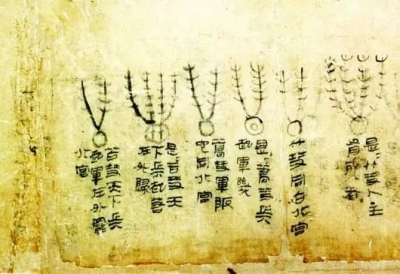 是＝竹彗人主
有死者
竹彗同占北宮
是＝蒿彗兵
起軍幾
蒿彗軍阪
它同北宮
是＝苫彗天
下兵起若
在外歸
苫彗天下兵
起軍在外罷
北宮